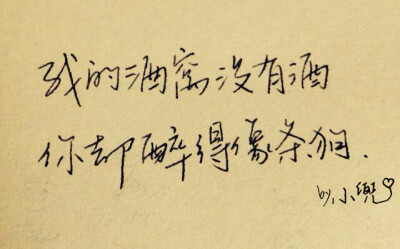 我的酒窝没有酒
你却醉得像条狗.
by.小兜♡